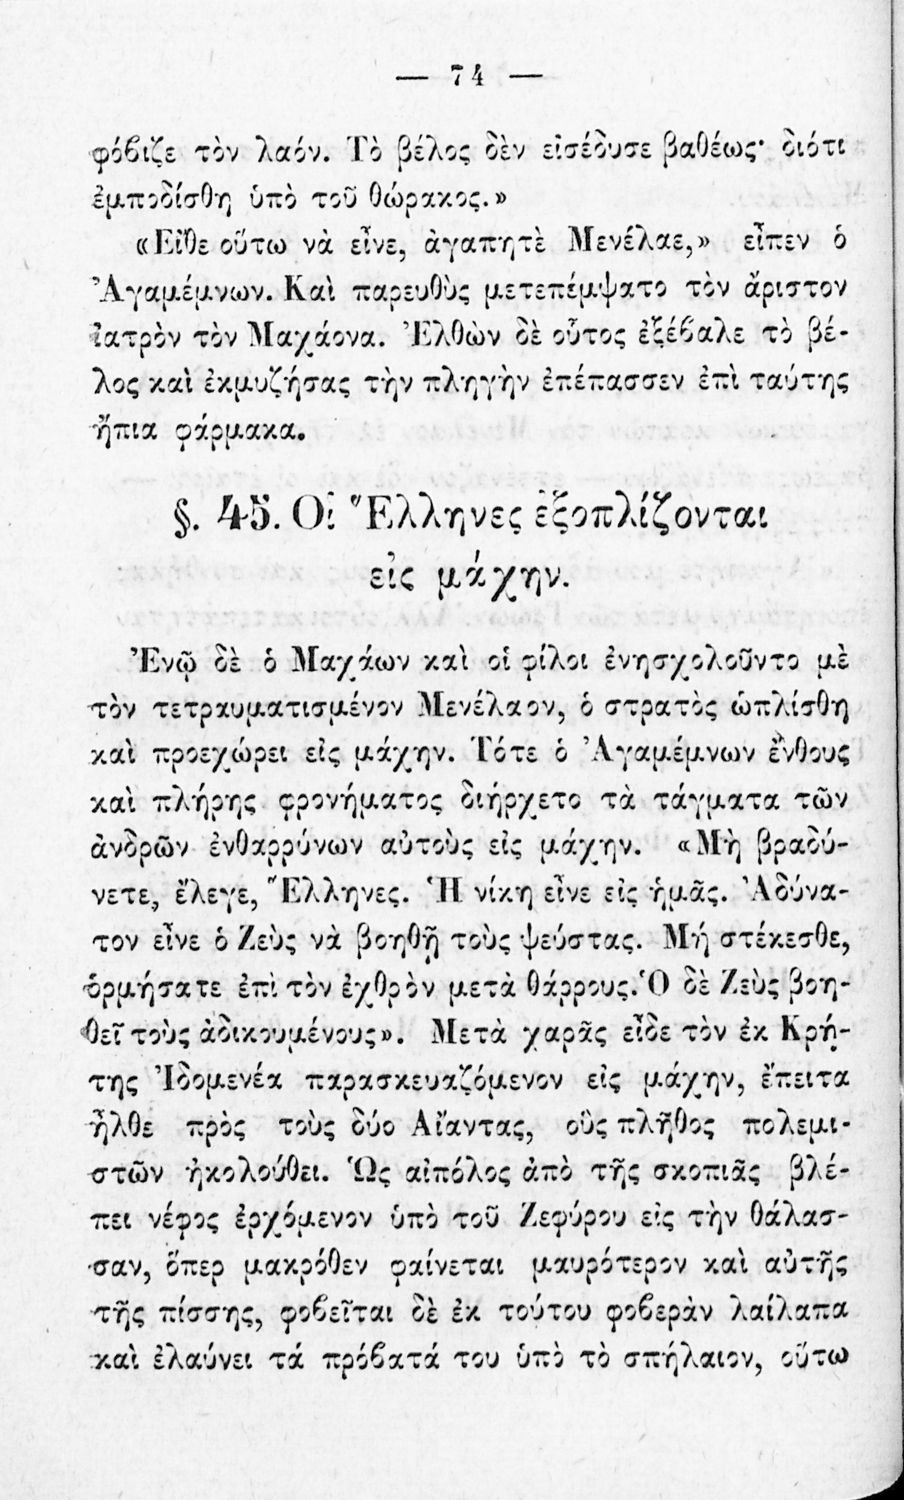 — 74 —
φόβιζε τὸν λαόν. Τὸ βέλος δὲν εἰσέδυσε βαθέως· διότι
ἐμποδίσθη ὑπὸ τοῦ θώρακος.»
«Εἴθε οὕτω νὰ εἶνε, ἀγαπητὲ Μενέλαε,» εἶπεν ὁ
Ἀγαμέμνων. Καὶ παρευθὺς μετεπέμψατο τὸν ἄριστον
ἰατρὸν τὸν Μαχάονα. Ἐλθὼν δὲ οὗτος ἐξέβαλε τὸ βέ-
λος καὶ ἐκμυζήσας τὴν πληγὴν ἐπέπασσεν ἐπὶ ταύτης
ἤπια φάρμακα.
§. 45. Οἱ Ἕλληνες ἐξοπλίζονται
εἰς μάχην.
Ἐνῷ δὲ ὁ Μαχάων καὶ οἱ φίλοι ἐνησχολοῦντο μὲ
τὸν τετραυματισμένον Μενέλαον, ὁ στρατὸς ὡπλίσθη
καὶ προεχώρει εἰς μάχην. Τότε ὁ Ἀγαμέμνων ἔνθους
καὶ πλήρης φρονήματος διήρχετο τὰ τάγματα τῶν
ἀνδρῶν ἐνθαρρύνων αὐτοὺς εἰς μάχην. «Μὴ βραδύ-
νετε, ἔλεγε, Ἕλληνες. Ἡ νίκη εἶνε εἰς ἡμᾶς. Ἀδύνα-
τον εἶνε ὁ Ζεὺς νὰ βοηθῇ τοὺς ψεύστας. Μή στέκεσθε,
ὁρμήσατε ἐπὶ τὸν ἐχθρὸν μετὰ θάρρους. Ὁ δὲ Ζεὺς βοη-
θεῖ τοὺς ἀδικουμένους». Μετὰ χαρᾶς εἶδε τὸν ἐκ Κρή-
της Ἰδομενέα παρασκευαζόμενον εἰς μάχην, ἔπειτα
ἦλθε πρὸς τοὺς δύο Αἴαντας, οὓς πλῆθος πολεμι-
στῶν ἠκολούθει. Ὡς αἰπόλος ἀπὸ τῆς σκοπιᾶς βλέ-
πει νέφος ἐρχόμενον ὑπὸ τοῦ Ζεφύρου εἰς τὴν θάλασ-
σαν, ὅπερ μακρόθεν φαίνεται μαυρότερον καὶ αὐτῆς
τῆς πίσσης, φοβεῖται δὲ ἐκ τούτου φοβερὰν λαίλαπα
καὶ ἐλαύνει τά πρόβατά του ὑπὸ τὸ σπήλαιον, οὕτω